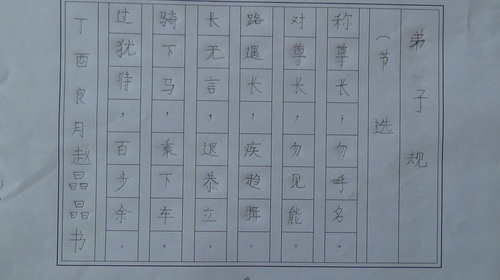 弟子规
（节选
称尊长，勿呼名。
对尊长，勿见能。
路遇长，疾趋揖。
长无言，退恭立。
骑下马，乘下车。
过犹待，百步余。
丁酉良月赵晶晶书